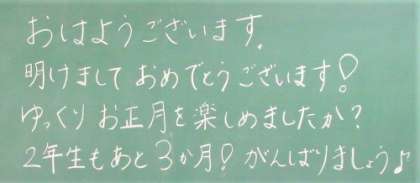 おはようございます。
明けましておめでとうございます！
ゆっくりお正月を楽しめましたか？
2年生もあと3か月！がんばりましょう♪